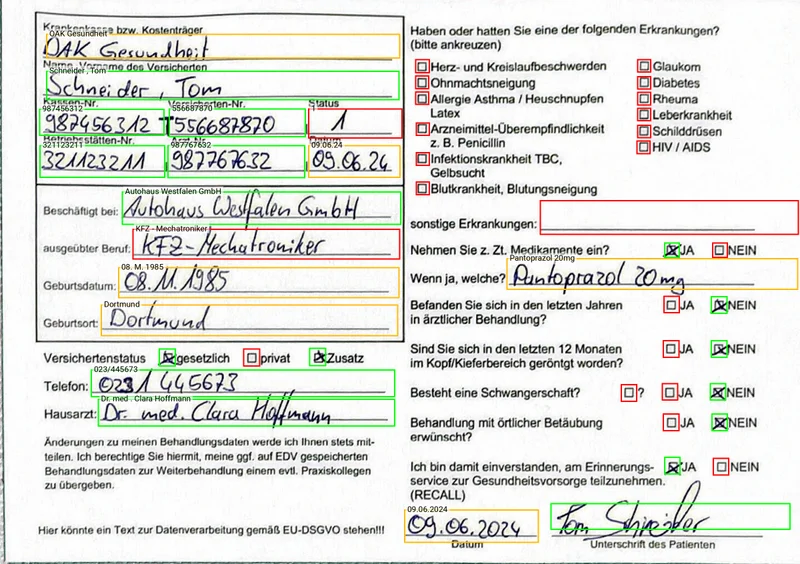 Krankenkasse bzw. Kostenträger
OAK Gesundheit
DAK Gesundheit
Name, Vorname des Versicherten
Schneider, Tom
Schneider, Tom
Kassen-Nr. Versicherten-Nr. Status
987456312 556687870
987456312 556687870 1
Betriebsstätten-Nr. Arzt-Nr. Datum
321123211 987767632 09.06.24
321123211 987767632 09.06.24
Autohaus Westfalen GmbH
Beschäftigt bei: Autohaus Westfalen GmbH
KFZ - Mechatroniker
ausgeübter Beruf: KFZ-Mechatroniker
08. M. 1985
Geburtsdatum: 08.11.1985
Dortmund
Geburtsort: Dortmund
Versichertenstatus gesetzlich privat Zusatz
023/445673
Telefon: 0231 445673
Dr. med . Clara Hoffmann
Hausarzt: Dr. med. Clara Hoffmann
Änderungen zu meinen Behandlungsdaten werde ich Ihnen stets mit-
teilen. Ich berechtige Sie hiermit, meine ggf. auf EDV gespeicherten
Behandlungsdaten zur Weiterbehandlung einem evtl. Praxiskollegen
zu übergeben.
Hier könnte ein Text zur Datenverarbeitung gemäß EU-DSGVO stehen!!!
Haben oder hatten Sie eine der folgenden Erkrankungen?
(bitte ankreuzen)
Herz- und Kreislaufbeschwerden
Ohnmachtsneigung
Allergie Asthma / Heuschnupfen
Latex
Arzneimittel-Überempfindlichkeit
z. B. Penicillin
Infektionskrankheit TBC,
Gelbsucht
Blutkrankheit, Blutungsneigung
Glaukom
Diabetes
Rheuma
Leberkrankheit
Schilddrüsen
HIV / AIDS
sonstige Erkrankungen:
Nehmen Sie z. Zt. Medikamente ein? JA NEIN
Pantoprazol 20mg
Wenn ja, welche? Pantoprazol 20mg
Befanden Sie sich in den letzten Jahren JA NEIN
in ärztlicher Behandlung?
Sind Sie sich in den letzten 12 Monaten JA NEIN
im Kopf/Kieferbereich geröngt worden?
Besteht eine Schwangerschaft? ? JA NEIN
Behandlung mit örtlicher Betäubung JA NEIN
erwünscht?
Ich bin damit einverstanden, am Erinnerungs- JA NEIN
service zur Gesundheitsvorsorge teilzunehmen.
(RECALL)
09.06.2024
09.06.2024 Tom Schneider
Datum Unterschrift des Patienten